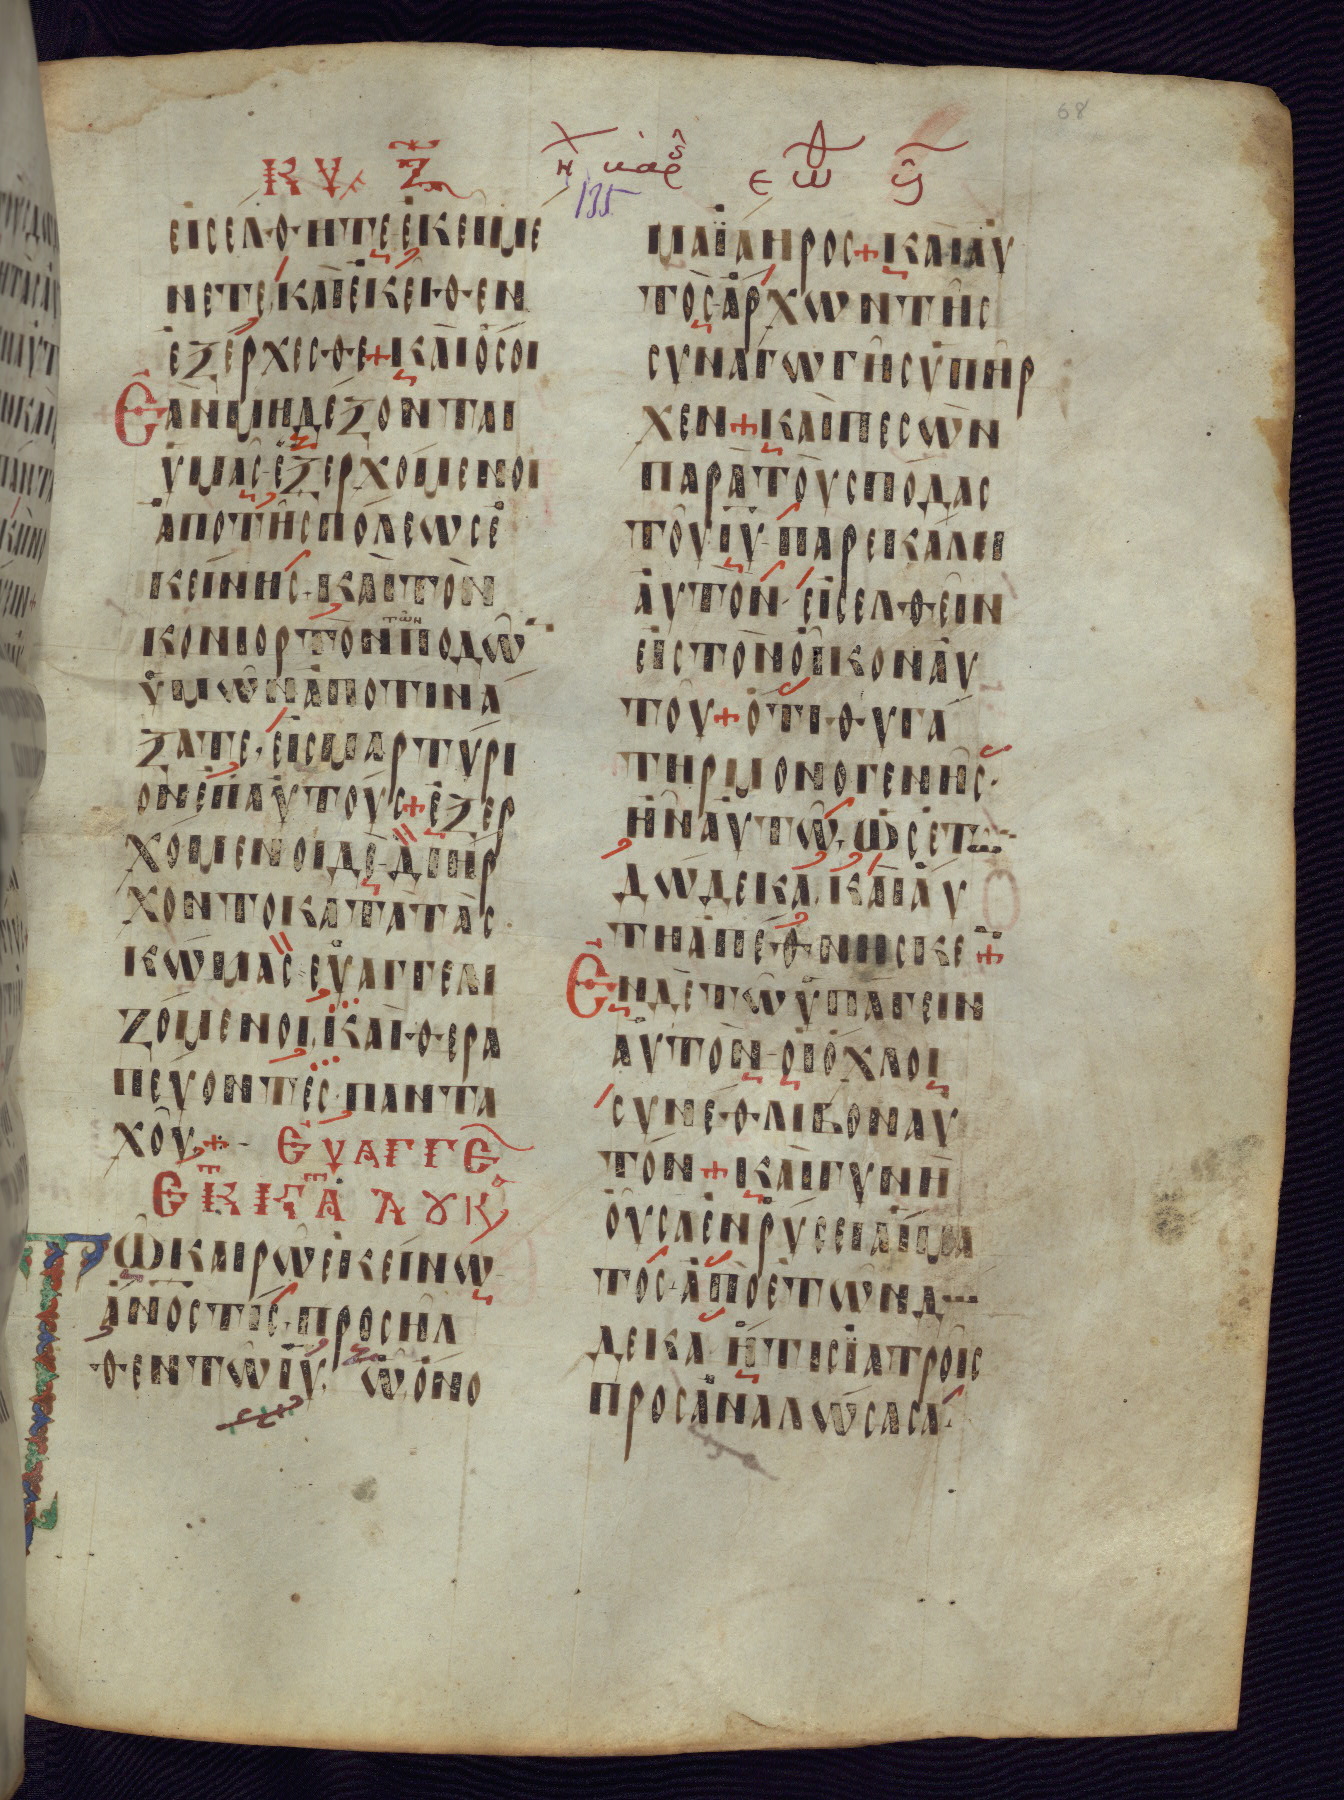 68
ΚΥ Ζ
135
ΕΙΣΕΛΘΗΤΕ ΕΚΕΙ ΜΕ
ΝΕΤΕ, ΚΑΙ ΕΚΕΙΘΕΝ
ΕΞΕΡΧΕΣΘΕ + ΚΑΙ ΟΣΟΙ
ΕΑΝ ΜΗ ΔΕΞΟΝΤΑΙ
ΥΜΑΣ· ΕΞΕΡΧΟΜΕΝΟΙ
ΑΠΟ ΤΗΣ ΠΟΛΕΩΣ Ε
ΚΕΙΝΗΣ· ΚΑΙ ΤΟΝ
ΚΟΝΙΟΡΤΟΝ ΤΩΝ ΠΟΔΩ̅
ΥΜΩΝ ΑΠΟΤΙΝΑ
ΞΑΤΕ, ΕΙΣ ΜΑΡΤΥΡΙ
ΟΝ ΕΠ ΑΥΤΟΥΣ + ΕΞΕΡ
ΧΟΜΕΝΟΙ ΔΕ· ΔΙΗΡ
ΧΟΝΤΟ ΚΑΤΑ ΤΑΣ
ΚΩΜΑΣ· ΕΥΑΓΓΕΛΙ
ΖΟΜΕΝΟΙ, ΚΑΙ ΘΕΡΑ
ΠΕΥΟΝΤΕΣ· ΠΑΝΤΑ
ΧΟΥ + ΕΥΑΓΓΕ
ΕΚ ΚΤΑ ΛΟΥΚ
ΤΩ ΚΑΙΡΩ ΕΚΕΙΝΩ
ΑΝΟΣ ΤΙΣ, ΠΡΟΣΗΛ
ΘΕΝ ΤΩ ΙΥ, Ω ΟΝΟ
ΜΑ ΙΑΗΡΟΣ + ΚΑΙ ΑΥ
ΤΟΣ ΑΡΧΩΝ ΤΗΣ
ΣΥΝΑΓΩΓΗΣ ΥΠΗΡ
ΧΕΝ + ΚΑΙ ΠΕΣΩΝ
ΠΑΡΑ ΤΟΥΣ ΠΟΔΑΣ
ΤΟΥ ΙΥ· ΠΑΡΕΚΑΛΕΙ
ΑΥΤΟΝ· ΕΙΣΕΛΘΕΙΝ
ΕΙΣ ΤΟΝ ΟΙΚΟΝ ΑΥ
ΤΟΥ + ΟΤΙ ΘΥΓΑ
ΤΗΡ ΜΟΝΟΓΕΝΗΣ·
ΗΝ ΑΥΤΩ, ΩΣ ΕΤΩ̅
ΔΩΔΕΚΑ, ΚΑΙ ΑΥ
ΤΗ ΑΠΕΘΝΗΣΚΕ +
ΕΝ ΔΕ ΤΩ ΥΠΑΓΕΙΝ
ΑΥΤΟΝ· ΟΙ ΟΧΛΟΙ
ΣΥΝΕΘΛΙΒΟΝ ΑΥ
ΤΟΝ + ΚΑΙ ΓΥΝΗ
ΟΥΣΑ ΕΝ ΡΥΣΕΙ ΑΙΜΑ
ΤΟΣ· ΑΠΟ ΕΤΩΝ Δ
ΔΕΚΑ ΗΤΙΣ ΙΑΤΡΟΙΣ
ΠΡΟΣΑΝΑΛΩΣΑΣΑ